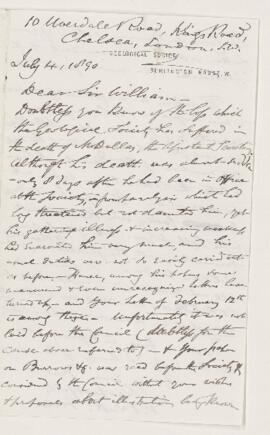 10 Uverdale Road, King's Road,
Chelsea, London. S.W.
GEOLOGICAL SOCIETY
BURLINGTON HOUSE, W.
July 4, 1890
Dear Sir William —
Doubtless you know of the loss which
the Geological Society has suffered in
the death of Mr Dallas, the Assistant Secretary
Although his death was
only 8 days after he had been in office
at the Society, from paralysis which had
long threatened but not daunted him, yet
his gathering illness & increasing weakness
him very much, and his
usual duties were not so easily carried out
as before. — Hence, among his papers some
unanswered & even unrecognized letters have
turned up — and your letter of February 12th
is among them. Unfortunately it was not
laid before the Council (doubtless for the
cause above referred to) — & your paper
on Burrows &c. was read before the Society &
considered by the Council without your wishes
& proposals about illustration being known